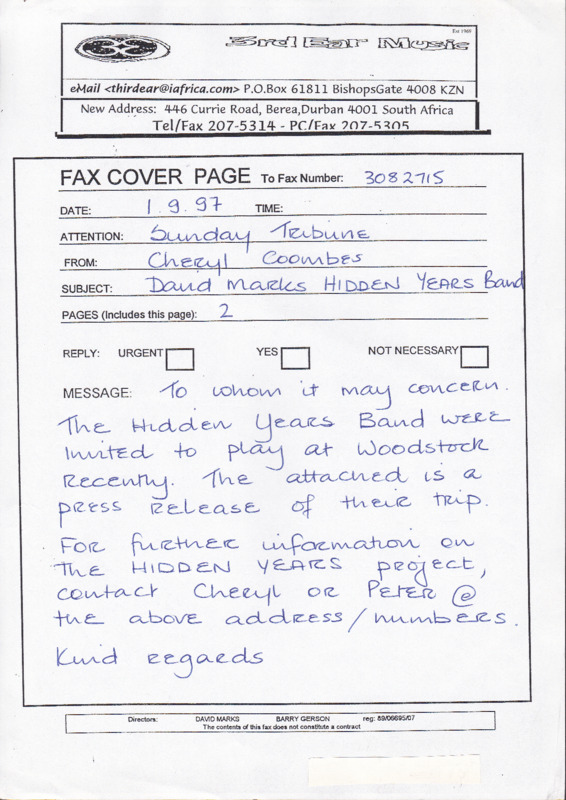 Est 1969
3rd Ear Music
eMail <thirdear@iafrica.com> P.O.Box 61811 BishopsGate 4008 KZN
New Address: 446 Currie Road, Berea,Durban 4001 South Africa
Tel/Fax 207-5314 - PC/Fax 207-5305
FAX COVER PAGE To Fax Number: 3082715
DATE: 1.9.97 TIME:
ATTENTION: Sunday Tribune
FROM: Cheryl Coombes
SUBJECT: David Marks HIDDEN YEARS Band
PAGES (Includes this page): 2
REPLY: URGENT YES NOT NECESSARY
MESSAGE: To whom it may concern.
The Hidden Years Band were
invited to play at Woodstock
recently. The attached is a
press release of their trip.
For further information on
the HIDDEN YEARS project,
contact Cheryl or Peter @
the above address/numbers.
Kind regards
Directors: DAVID MARKS BARRY GERSON reg: 89/06695/07
The contents of this fax does not constitute a contract